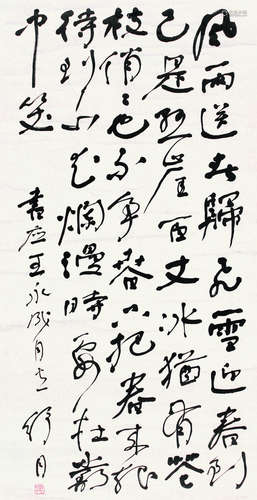 風雨送春歸飛雪迎春到
已是懸崖百丈冰猶有花
枝俏俏也不争春只把春来報
待到山花爛漫時她在叢
中笑
書应王永成同志 舒同